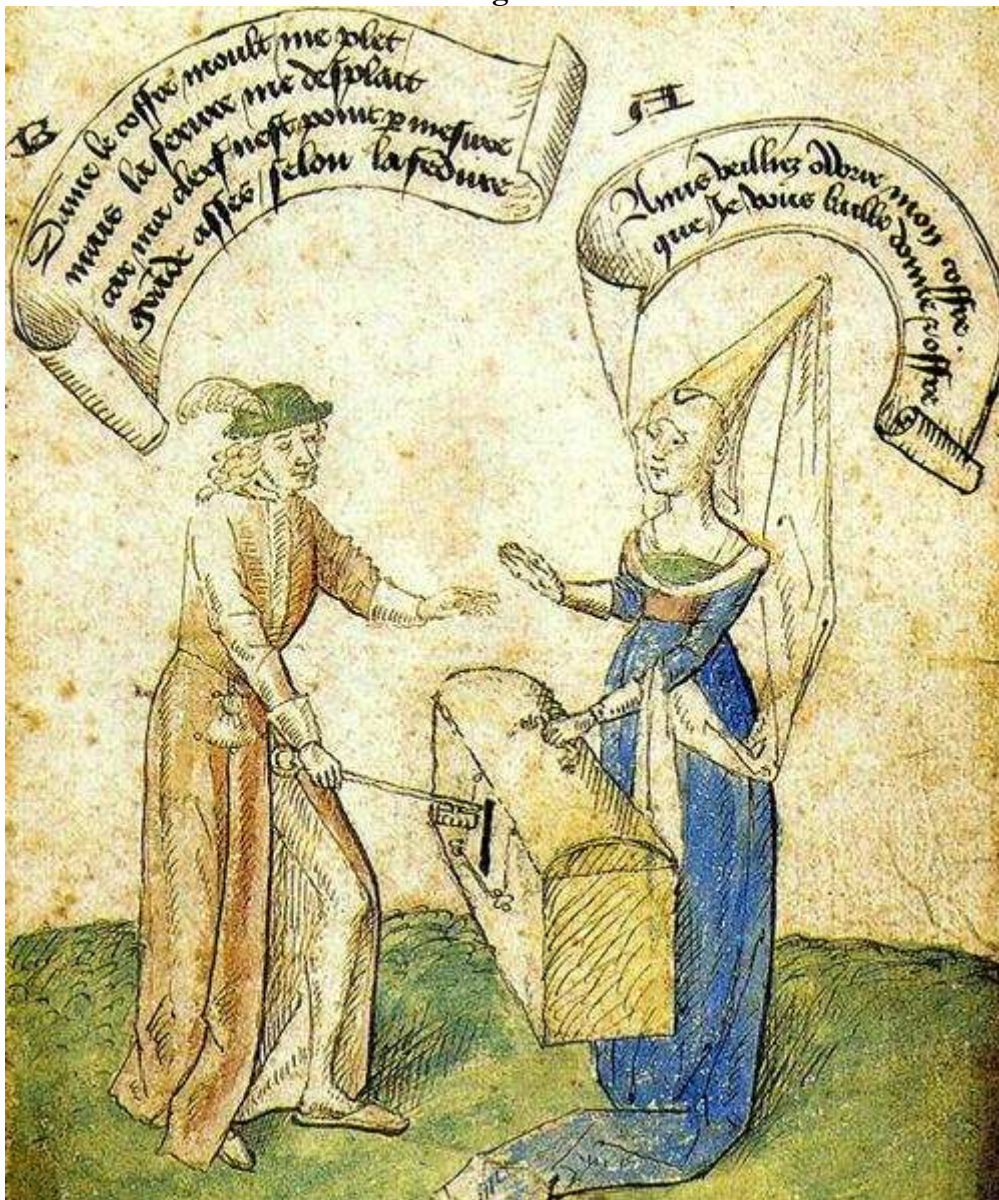 B
Dame le coffre moult me plet
mais la serure me desplait
car ma clef nest point p mesure
grade asses selon la fedure
A
Amis veilliez ovrir mon coffre
que Je vous baille donne z offre